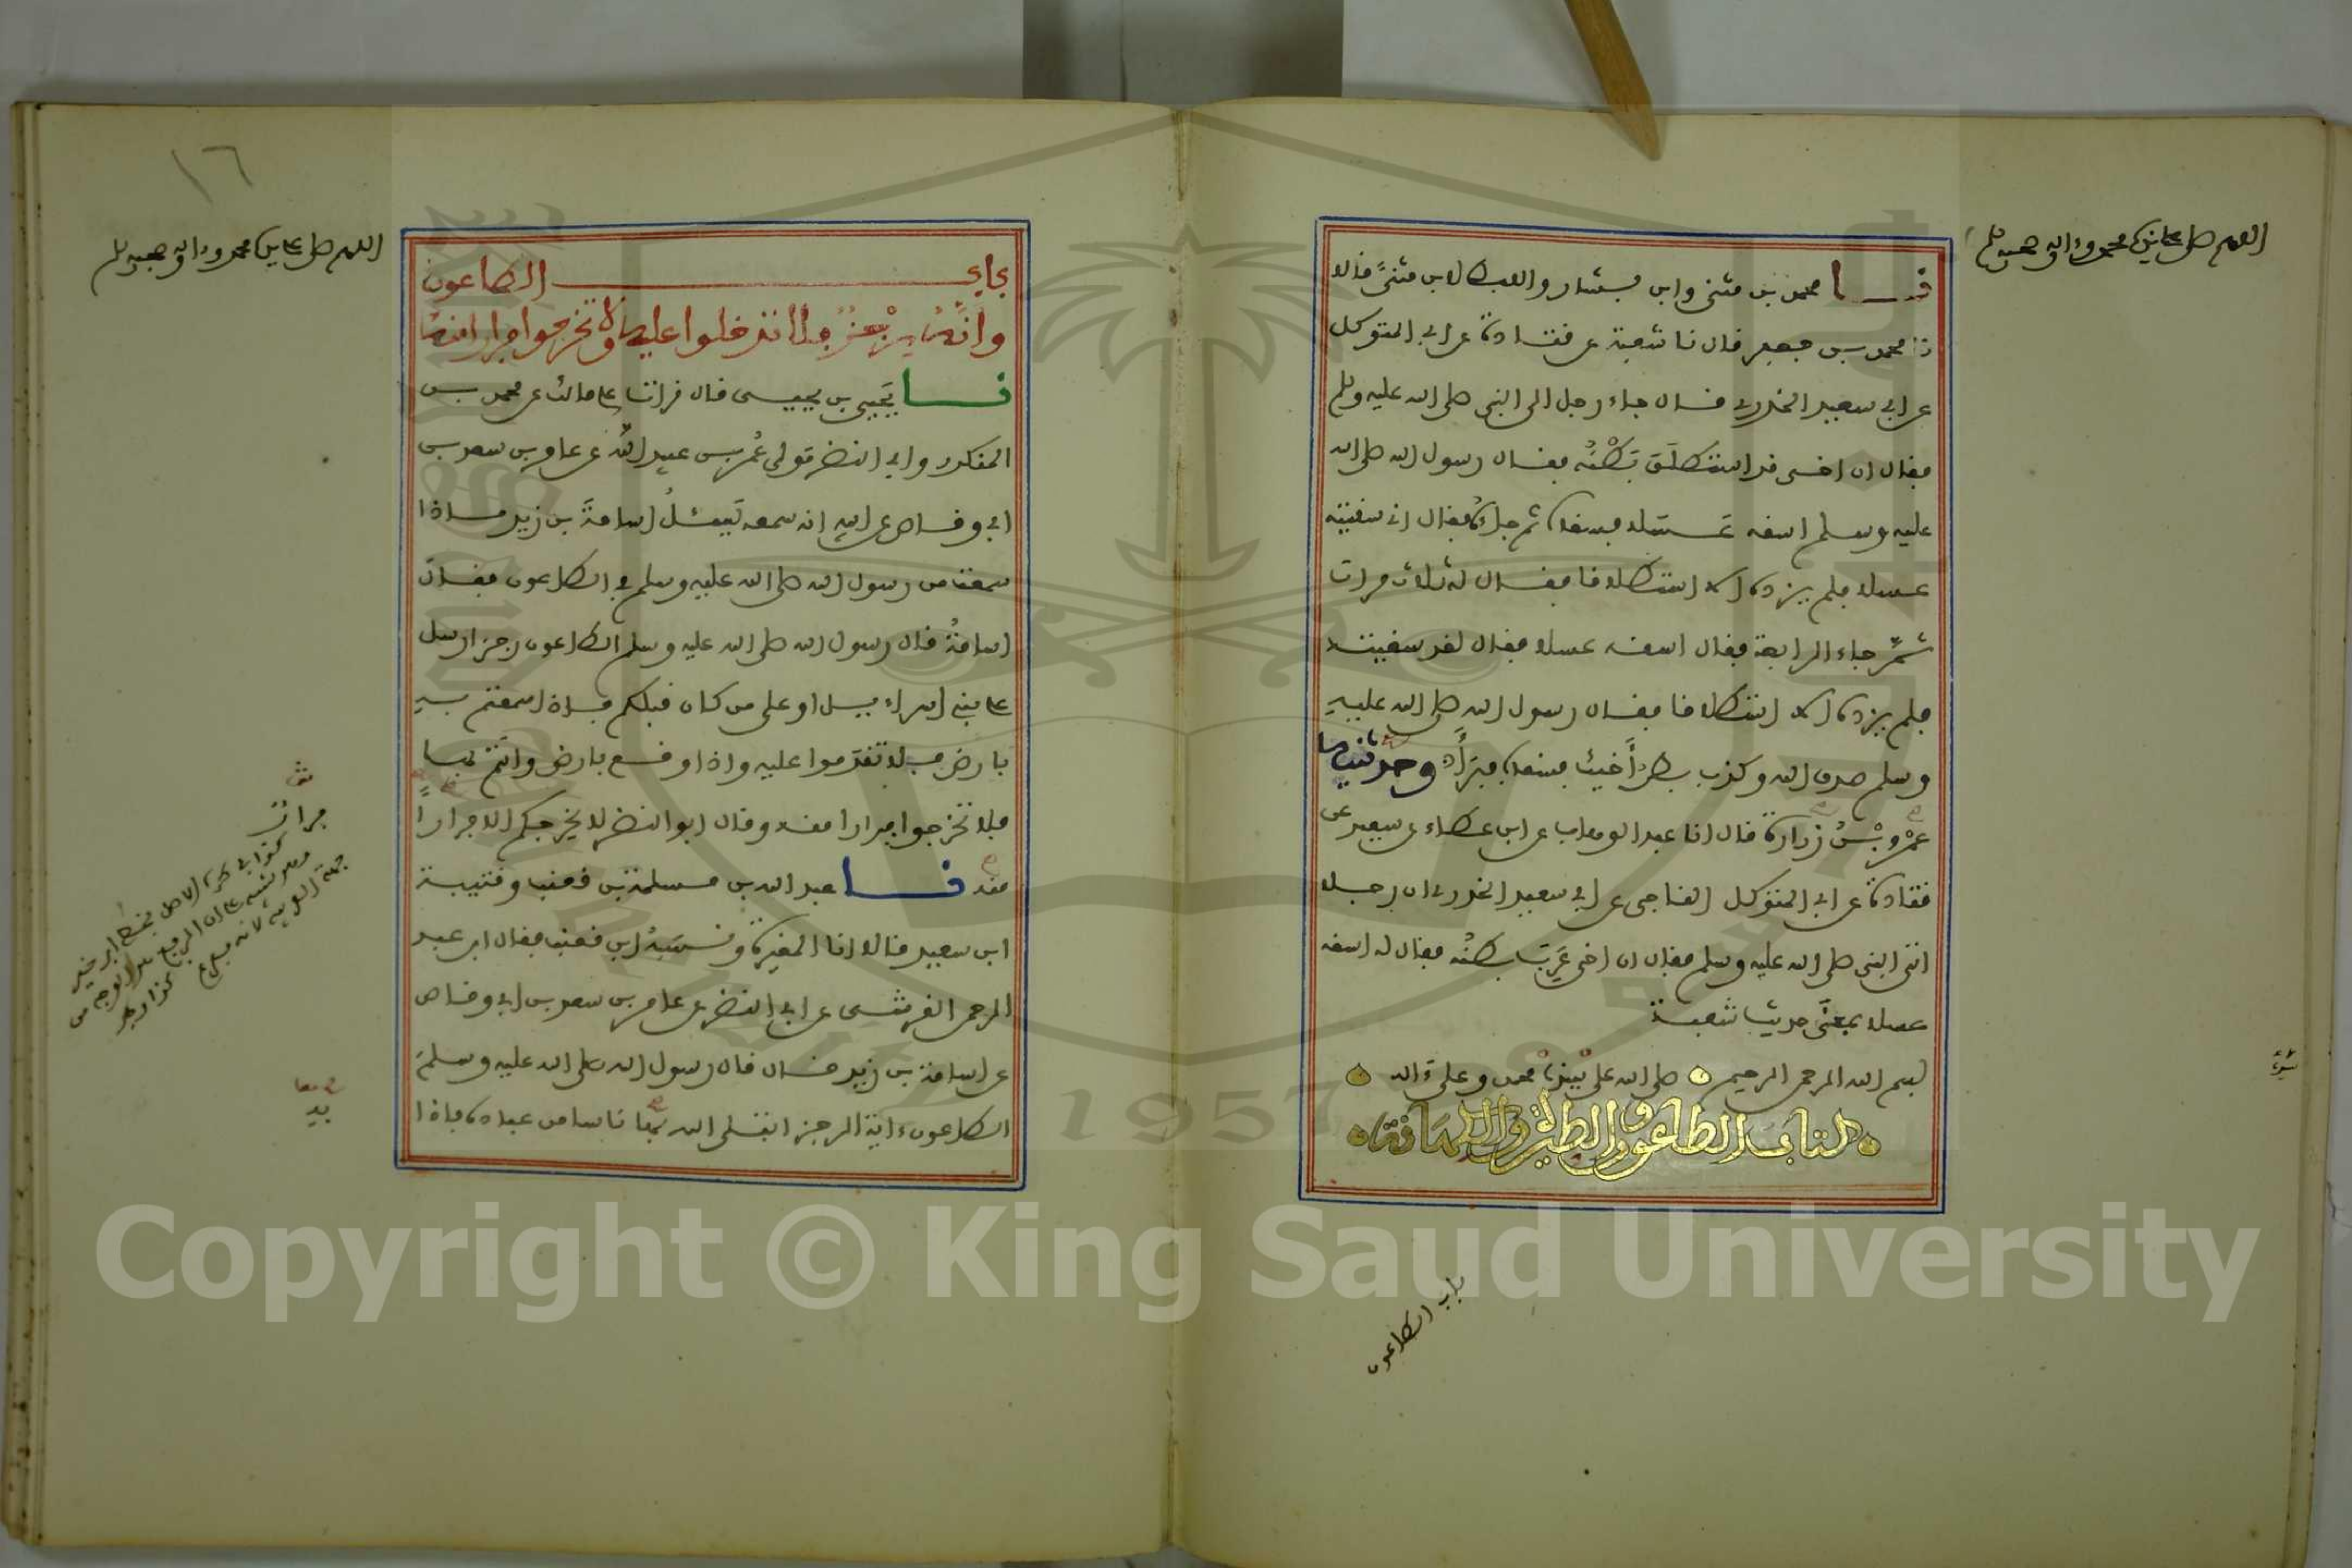 اللهم صل على نبينا محمد وءاله وصحبه وسلم
نا محمد بن مثنى وابن بشار واللفظ لابن مثنى قالا
نا محمد بن جعفر قال نا شعبة عن قتادة عن ابي المتوكل
عن ابي سعيد الخدري قال جاء رجل الى النبي صلى الله عليه وسلم
فقال ان اخي قد استطلق بَطْنُه فقال رسول الله صلى الله
عليه وسلم اسقه عَسَلا فسقاه ثم جاءه فقال اني سقيته
عسلا فلم يزده الا استطلاقا فقال له ثلاث مرات
ثمّ جاء الرابعة فقال اسقه عسلا فقال لقد سقيته
فلم يزده الا استطلاقا فقال رسول الله صلى الله عليه
وسلم صدق الله وكذب بطن أَخيك فسقاه فبَرَأَ وحدثنيه
عَمْرو بْنُ زرارة قال انا عبد الوهاب عن ابن عطاء عن سعيد عن
قتادة عن ابي المتوكل الناجي عن ابي سعيد الخدري ان رجلا
اتى النبي صلى الله عليه وسلم فقال ان اخي عَرِبَ بطنُه فقال له اسقه
عسلا بمعنَى حديث شعبة
بسم الله الرحمن الرحيم صلى الله على نبينا محمد وعلى ءاله
كتاب الطاعون والطيرة والكهانة
باب الطاعون
١٦
اللهم صل على نبينا محمد وءاله وصحبه وسلم
باب في الطاعون
وانّه رِجْزٌ فلا تدخلوا عليه ولا تخرجوا فرارا منه
نا يَحيى بن يحيى قال قرات على مالك عن محمد بن
المنكدر وابي النضر مَولى عُمر بن عبيد الله عن عامر بن سعد بن
ابي وقاص عن ابيه انه سمعه يَسئلُ اسامةَ بن زيد ماذا
سمعت من رسول الله صلى الله عليه وسلم في الطاعون فقال
اسامةُ قال رسول الله صلى الله عليه وسلم الطاعون رجز ارسل
على بني اسراءيل او على من كان قبلكم فاذا سمعتم به
بارض فلا تقدَموا عليه واذا وقع بارض وانتم بها
فلا تخرجوا فرارا منه وقال ابو النضر لا يخرجكم الا فرارًا
منه نا عبد الله بن مسلمة بن قعنب وقتيبة
ابن سعيد قالا انا المغيرة ونسَبَهُ ابن قعنب فقال ابن عبد
الرحمن القرشي عن ابي النضر عن عامر بن سعد بن ابي وقاص
عن اسامة بن زيد قال قال رسول الله صلى الله عليه وسلم
الطاعون ءاية الرجز ابتلى الله بها ناسا من عباده فاذا
فرار
Copyright © King Saud University
1957